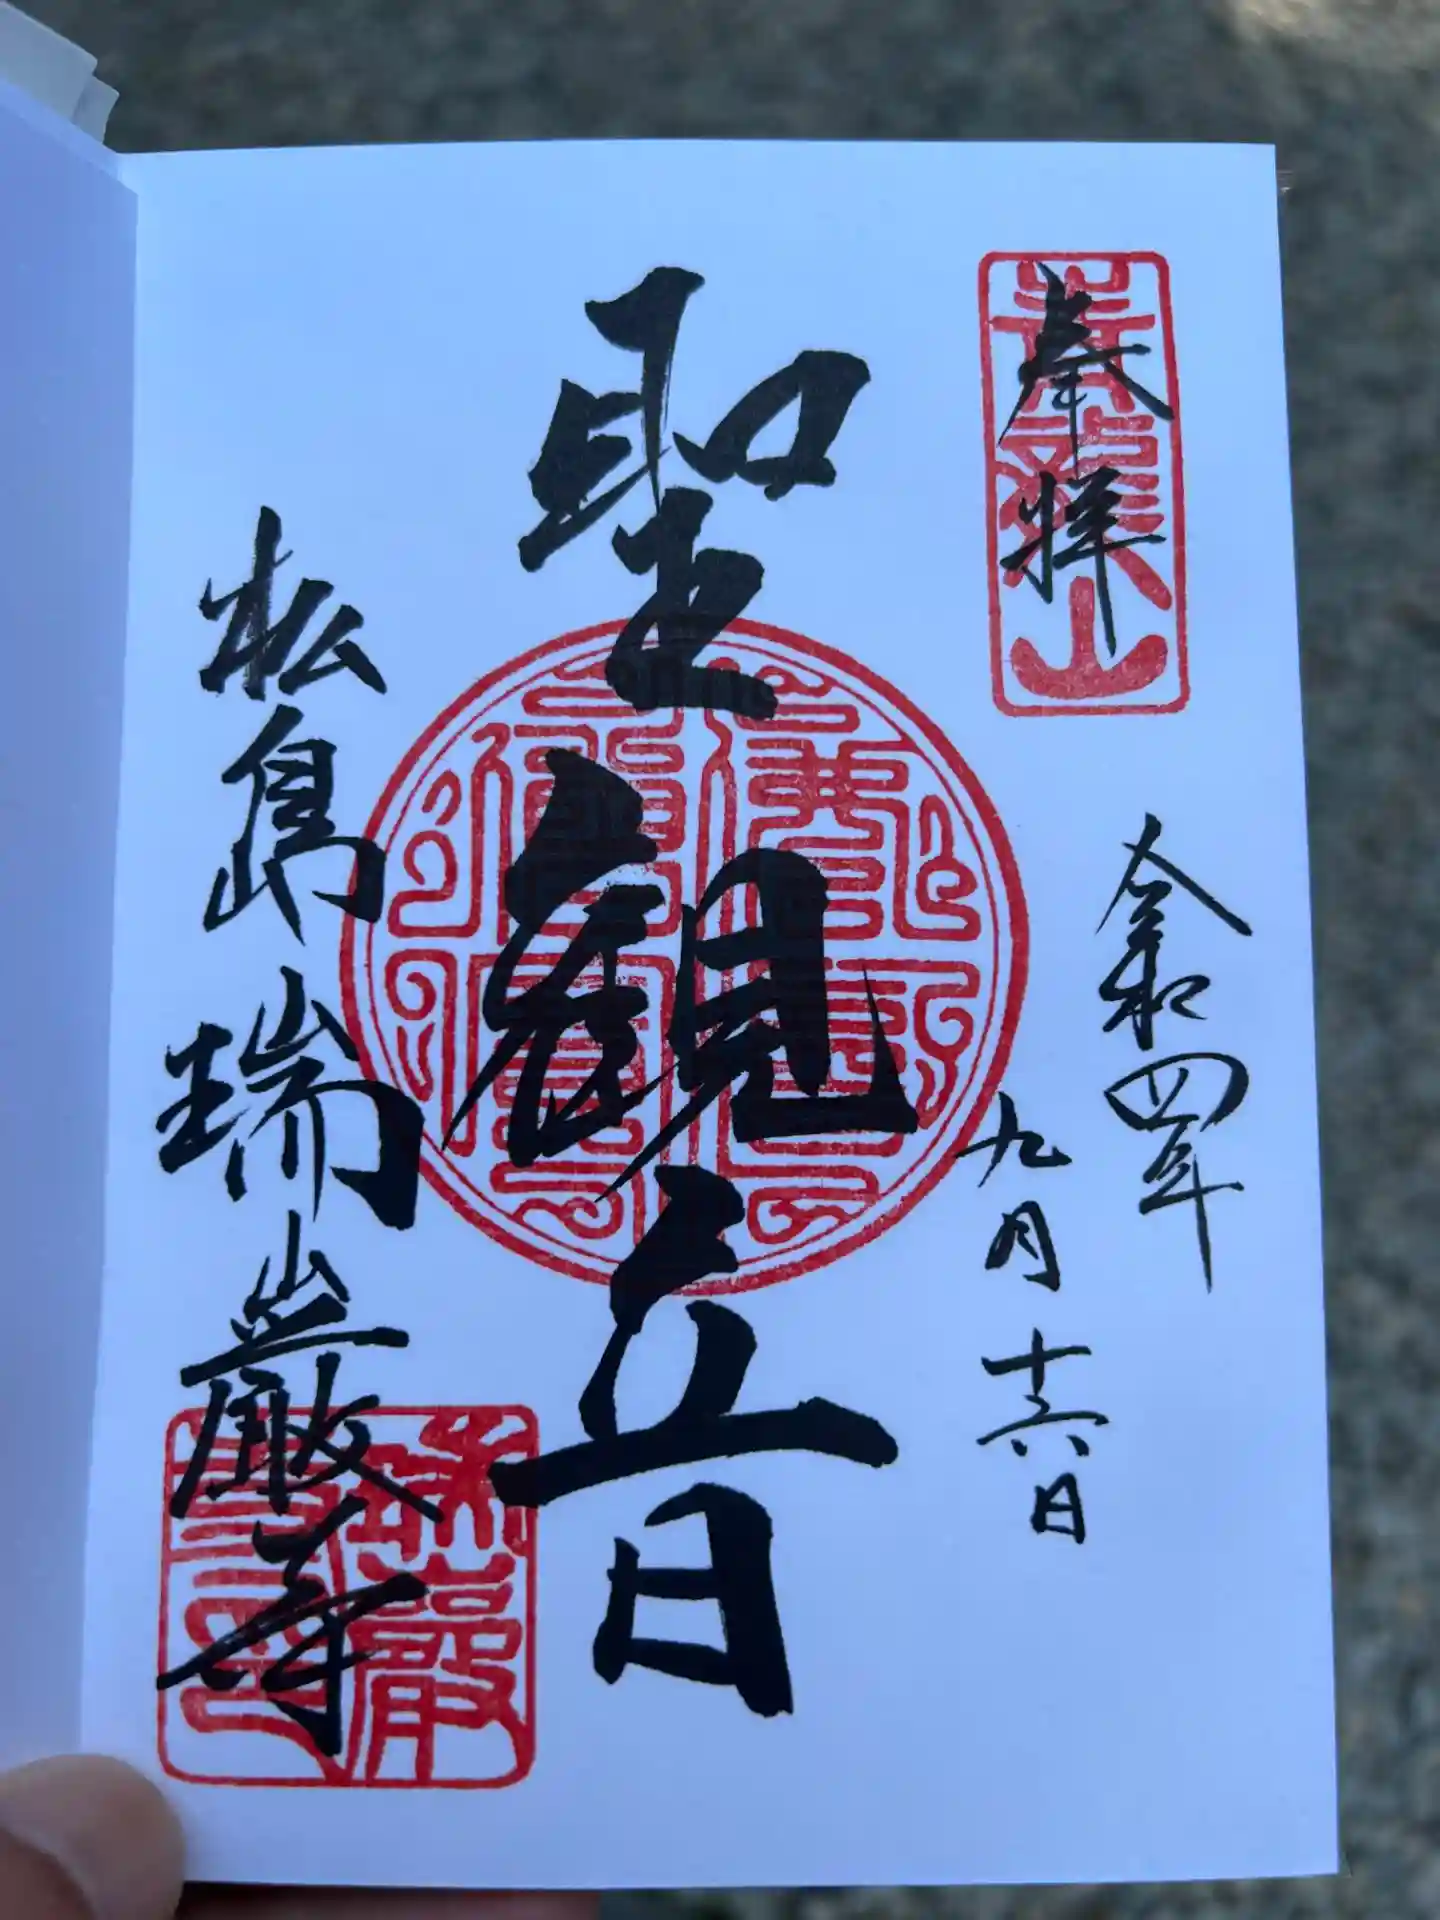 奉拝
青龍山
令和四年
九月十六日
聖観音
松島瑞巌寺